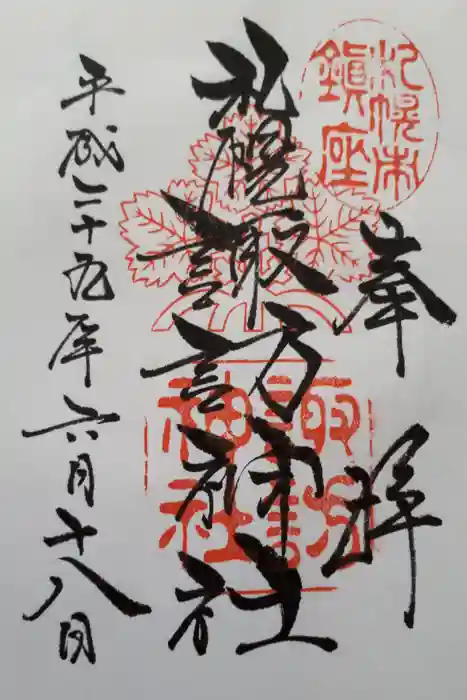 札幌市
鎮座
奉拝
札幌諏訪神社
諏訪
神社
平成二十五年六月十八日